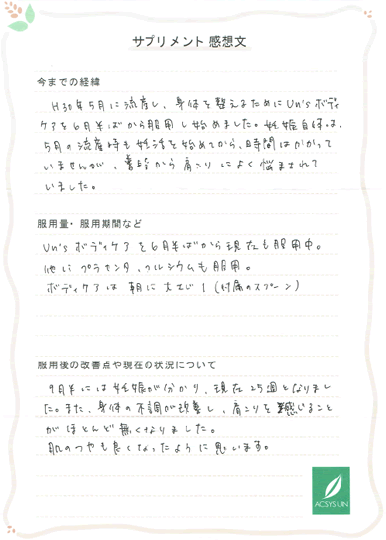 サプリメント 感想文
今までの経緯
H30年5月に流産し、身体を整えるためにUn'sボディ
ケアを6月半ばから服用し始めました。妊娠自体は、
5月の流産時も妊活を始めてから、時間はかかって
いませんが、普段から肩こりによく悩まされて
いました。
服用量・服用期間など
Un'sボディケアを6月半ばから現在も服用中。
他にプラセンタ、カルシウムも服用。
ボディケアは朝に大さじ1(付属のスプーン)
服用後の改善点や現在の状況について
9月半には妊娠が分かり、現在25週となりまし
た。また、身体の不調が改善し、肩こりを感じること
がほとんど無くなりました。
肌のつやも良くなったように思います。
ACSYS UN